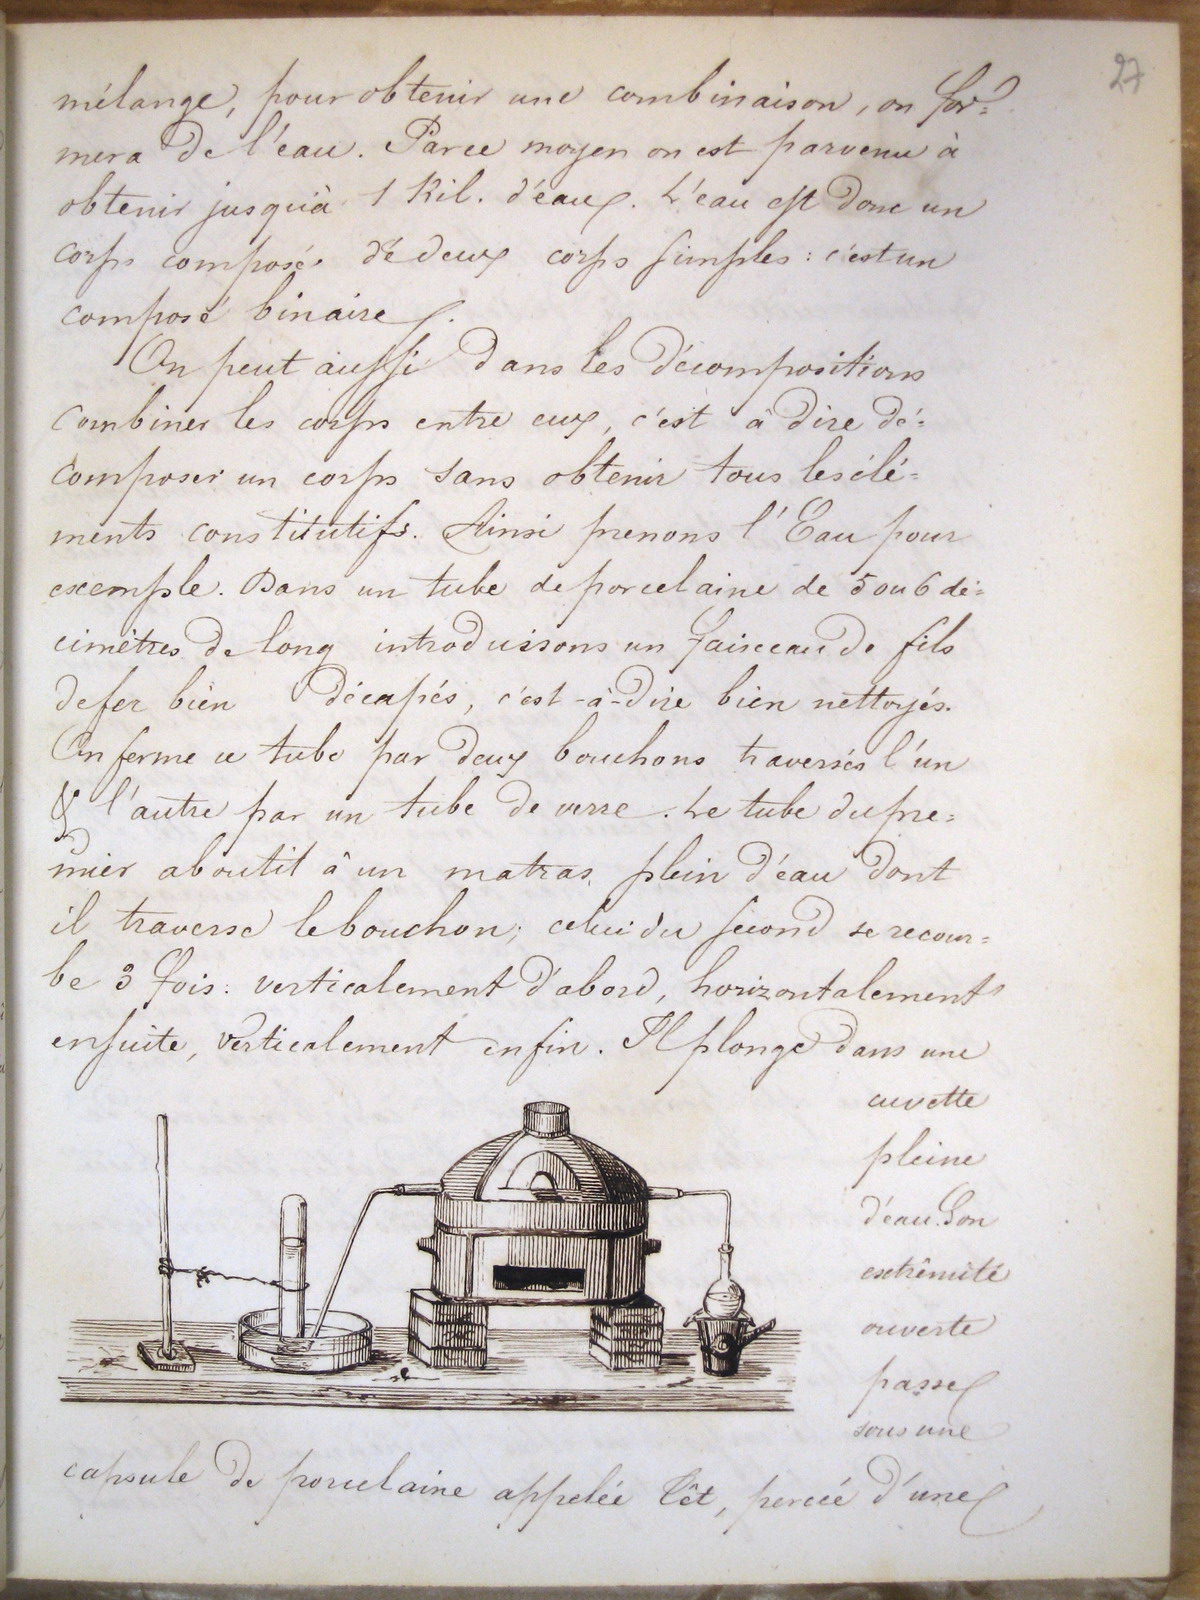 27
mélange, pour obtenir une combinaison, on for=
mera de l'eau. Par ce moyen on est parvenu à
obtenir jusqu'à 1 Kil. d'eau. L'eau est donc un
corps composé de deux corps simples : c'est un
composé binaire.
On peut aussi dans les décompositions
combiner les corps entre eux, c'est à dire dé=
composer un corps sans obtenir tous les élé=
ments constitutifs. Ainsi prenons l'Eau pour
exemple. Dans un tube de porcelaine de 5 ou 6 dé=
cimètres de long introduisons un faisceau de fils
de fer bien décapés, c'est-à-dire bien nettoyés.
On ferme ce tube par deux bouchons traversés l'un
& l'autre par un tube de verre. Le tube du pre=
mier aboutit à un matras plein d'eau dont
il traverse le bouchon; celui du second se recour=
be 3 fois : verticalement d'abord, horizontalement
ensuite, verticalement enfin. Il plonge dans une
cuvette
pleine
d'eau. Son
extrêmité
ouverte
passe
sous une
capsule de porcelaine appelée têt, percée d'une